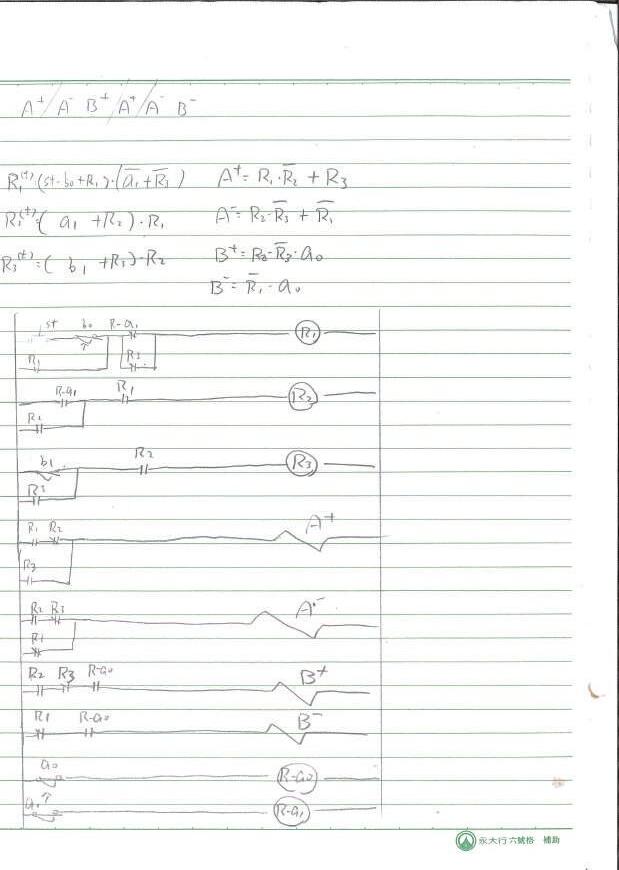 A⁺/A⁻ B⁺/A⁺/A⁻ B⁻
R₁⁽⁺⁾(st·b₀+R₁)·(a̅₁+R̅₃) A⁺= R₁·R̅₂ + R₃
R₂⁽⁺⁾=( a₁ +R₂)·R₁ A⁻= R₂·R̅₃ + R̅₁
R₃⁽⁺⁾=( b₁ +R₃)·R₂ B⁺= R₂·R̅₃·a₀
B⁻= R̅₁·a₀
st b₀ R-a₁ R₁
R₁ R₃
R-a₁ R₁ R₂
R₂
b₁ R₂ R₃
R₃
R₁ R₂ A⁺
R₃
R₂ R₃ A⁻
R₁
R₂ R₃ R-a₀ B⁺
R₁ R-a₀ B⁻
a₀ R-a₀
a₁ R-a₁
永大行 六號格 補助